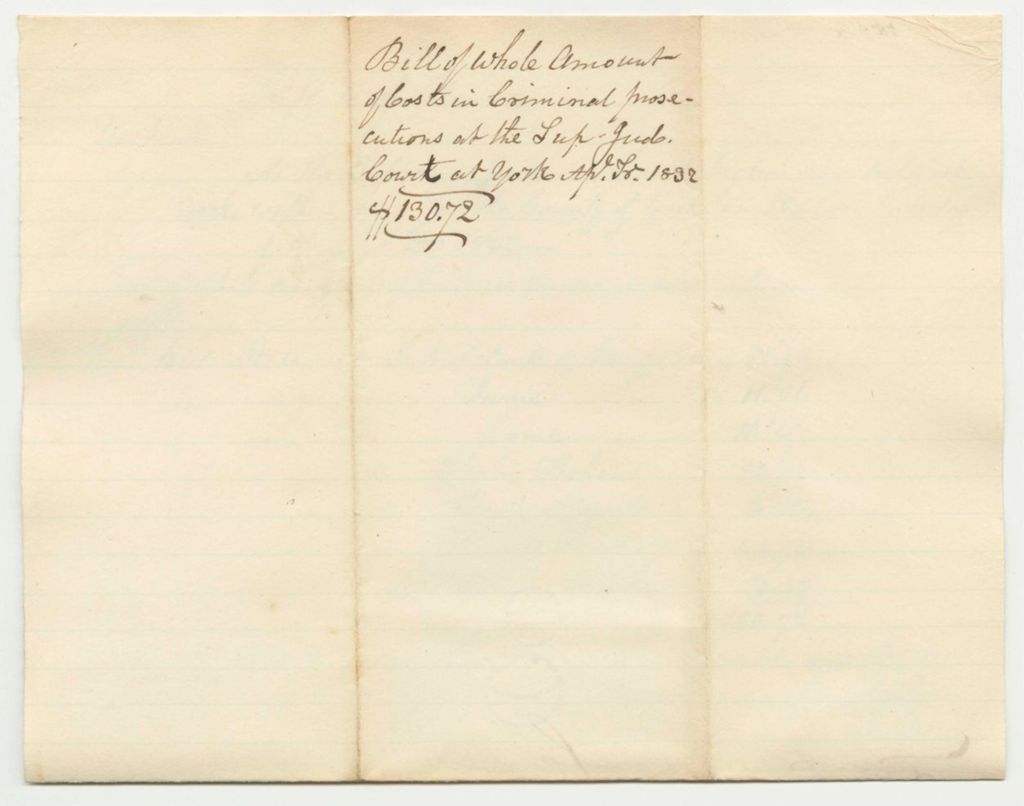 Bill of Whole Amount
of Costs in Criminal prose-
cutions at the Sup. Jud.
Court at York Apl. Tr. 1832
$130.72